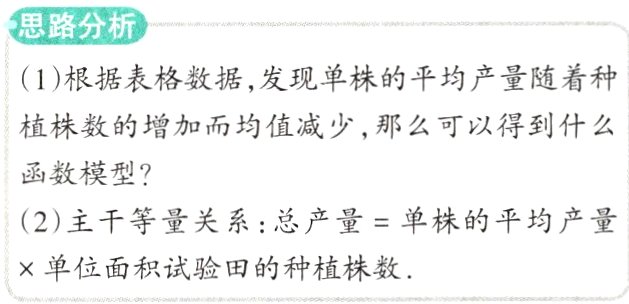 思路分析
(1)根据表格数据,发现单株的平均产量随着种
植株数的增加而均值减少,那么可以得到什么
函数模型?
(2)主干等量关系:总产量=单株的平均产量
×单位面积试验田的种植株数.